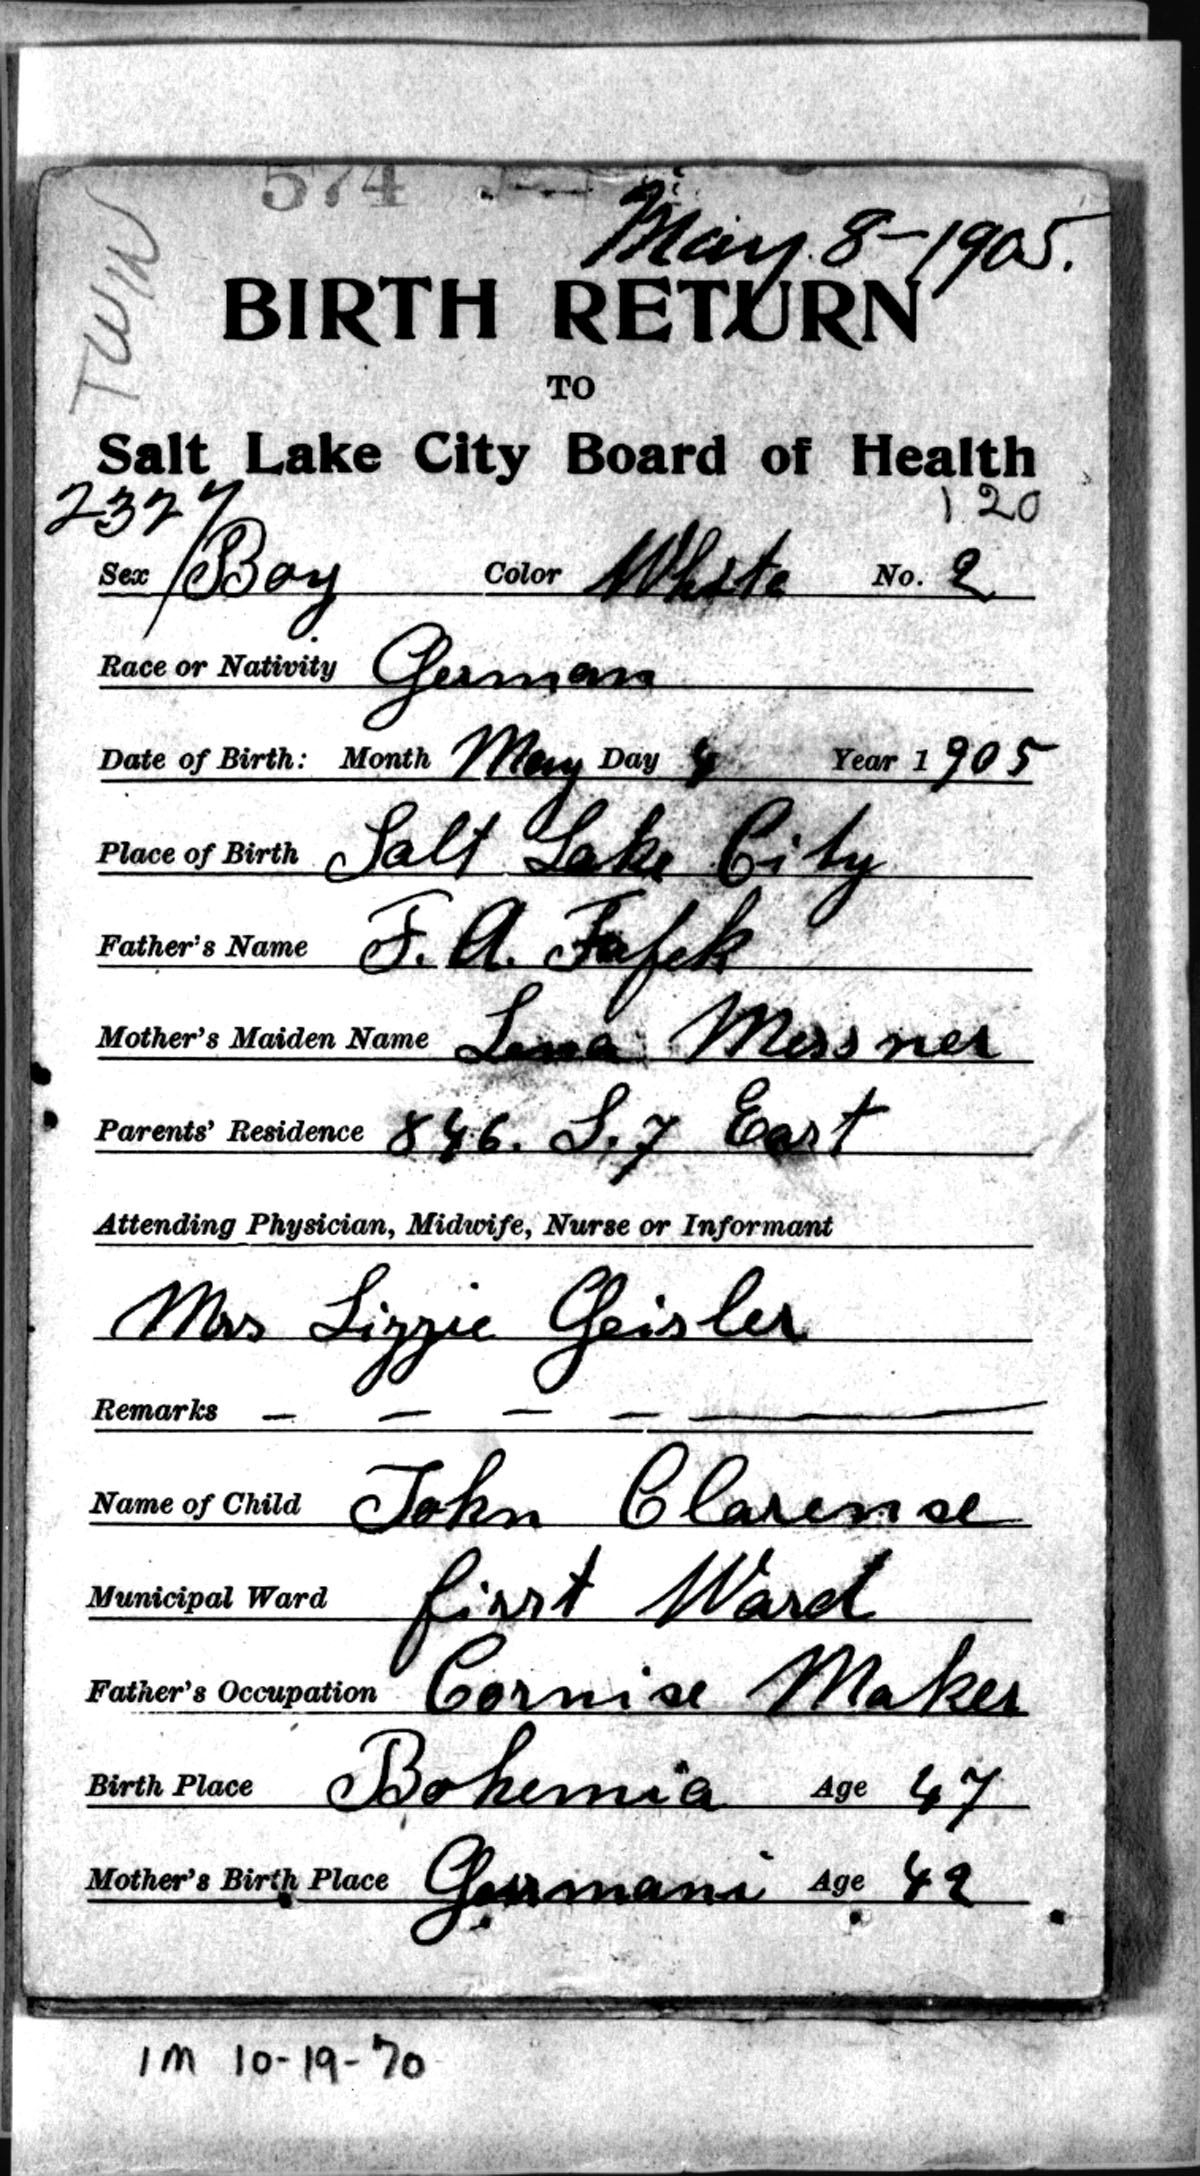 574
May 8-1905.
TWIN
BIRTH RETURN
TO
Salt Lake City Board of Health
2327
120
Sex Boy Color White No. 2
Race or Nativity German
Date of Birth: Month May Day 4 Year 1905
Place of Birth Salt Lake City
Father's Name F. A. Fafek
Mother's Maiden Name Lena Messner
Parents' Residence 846. S. 7 East
Attending Physician, Midwife, Nurse or Informant
Mrs Lizzie Geisler
Remarks — — — — —
Name of Child John Clarense
Municipal Ward first Ward
Father's Occupation Cornise Maker
Birth Place Bohemia Age 47
Mother's Birth Place Germani Age 42
1M 10-19-70